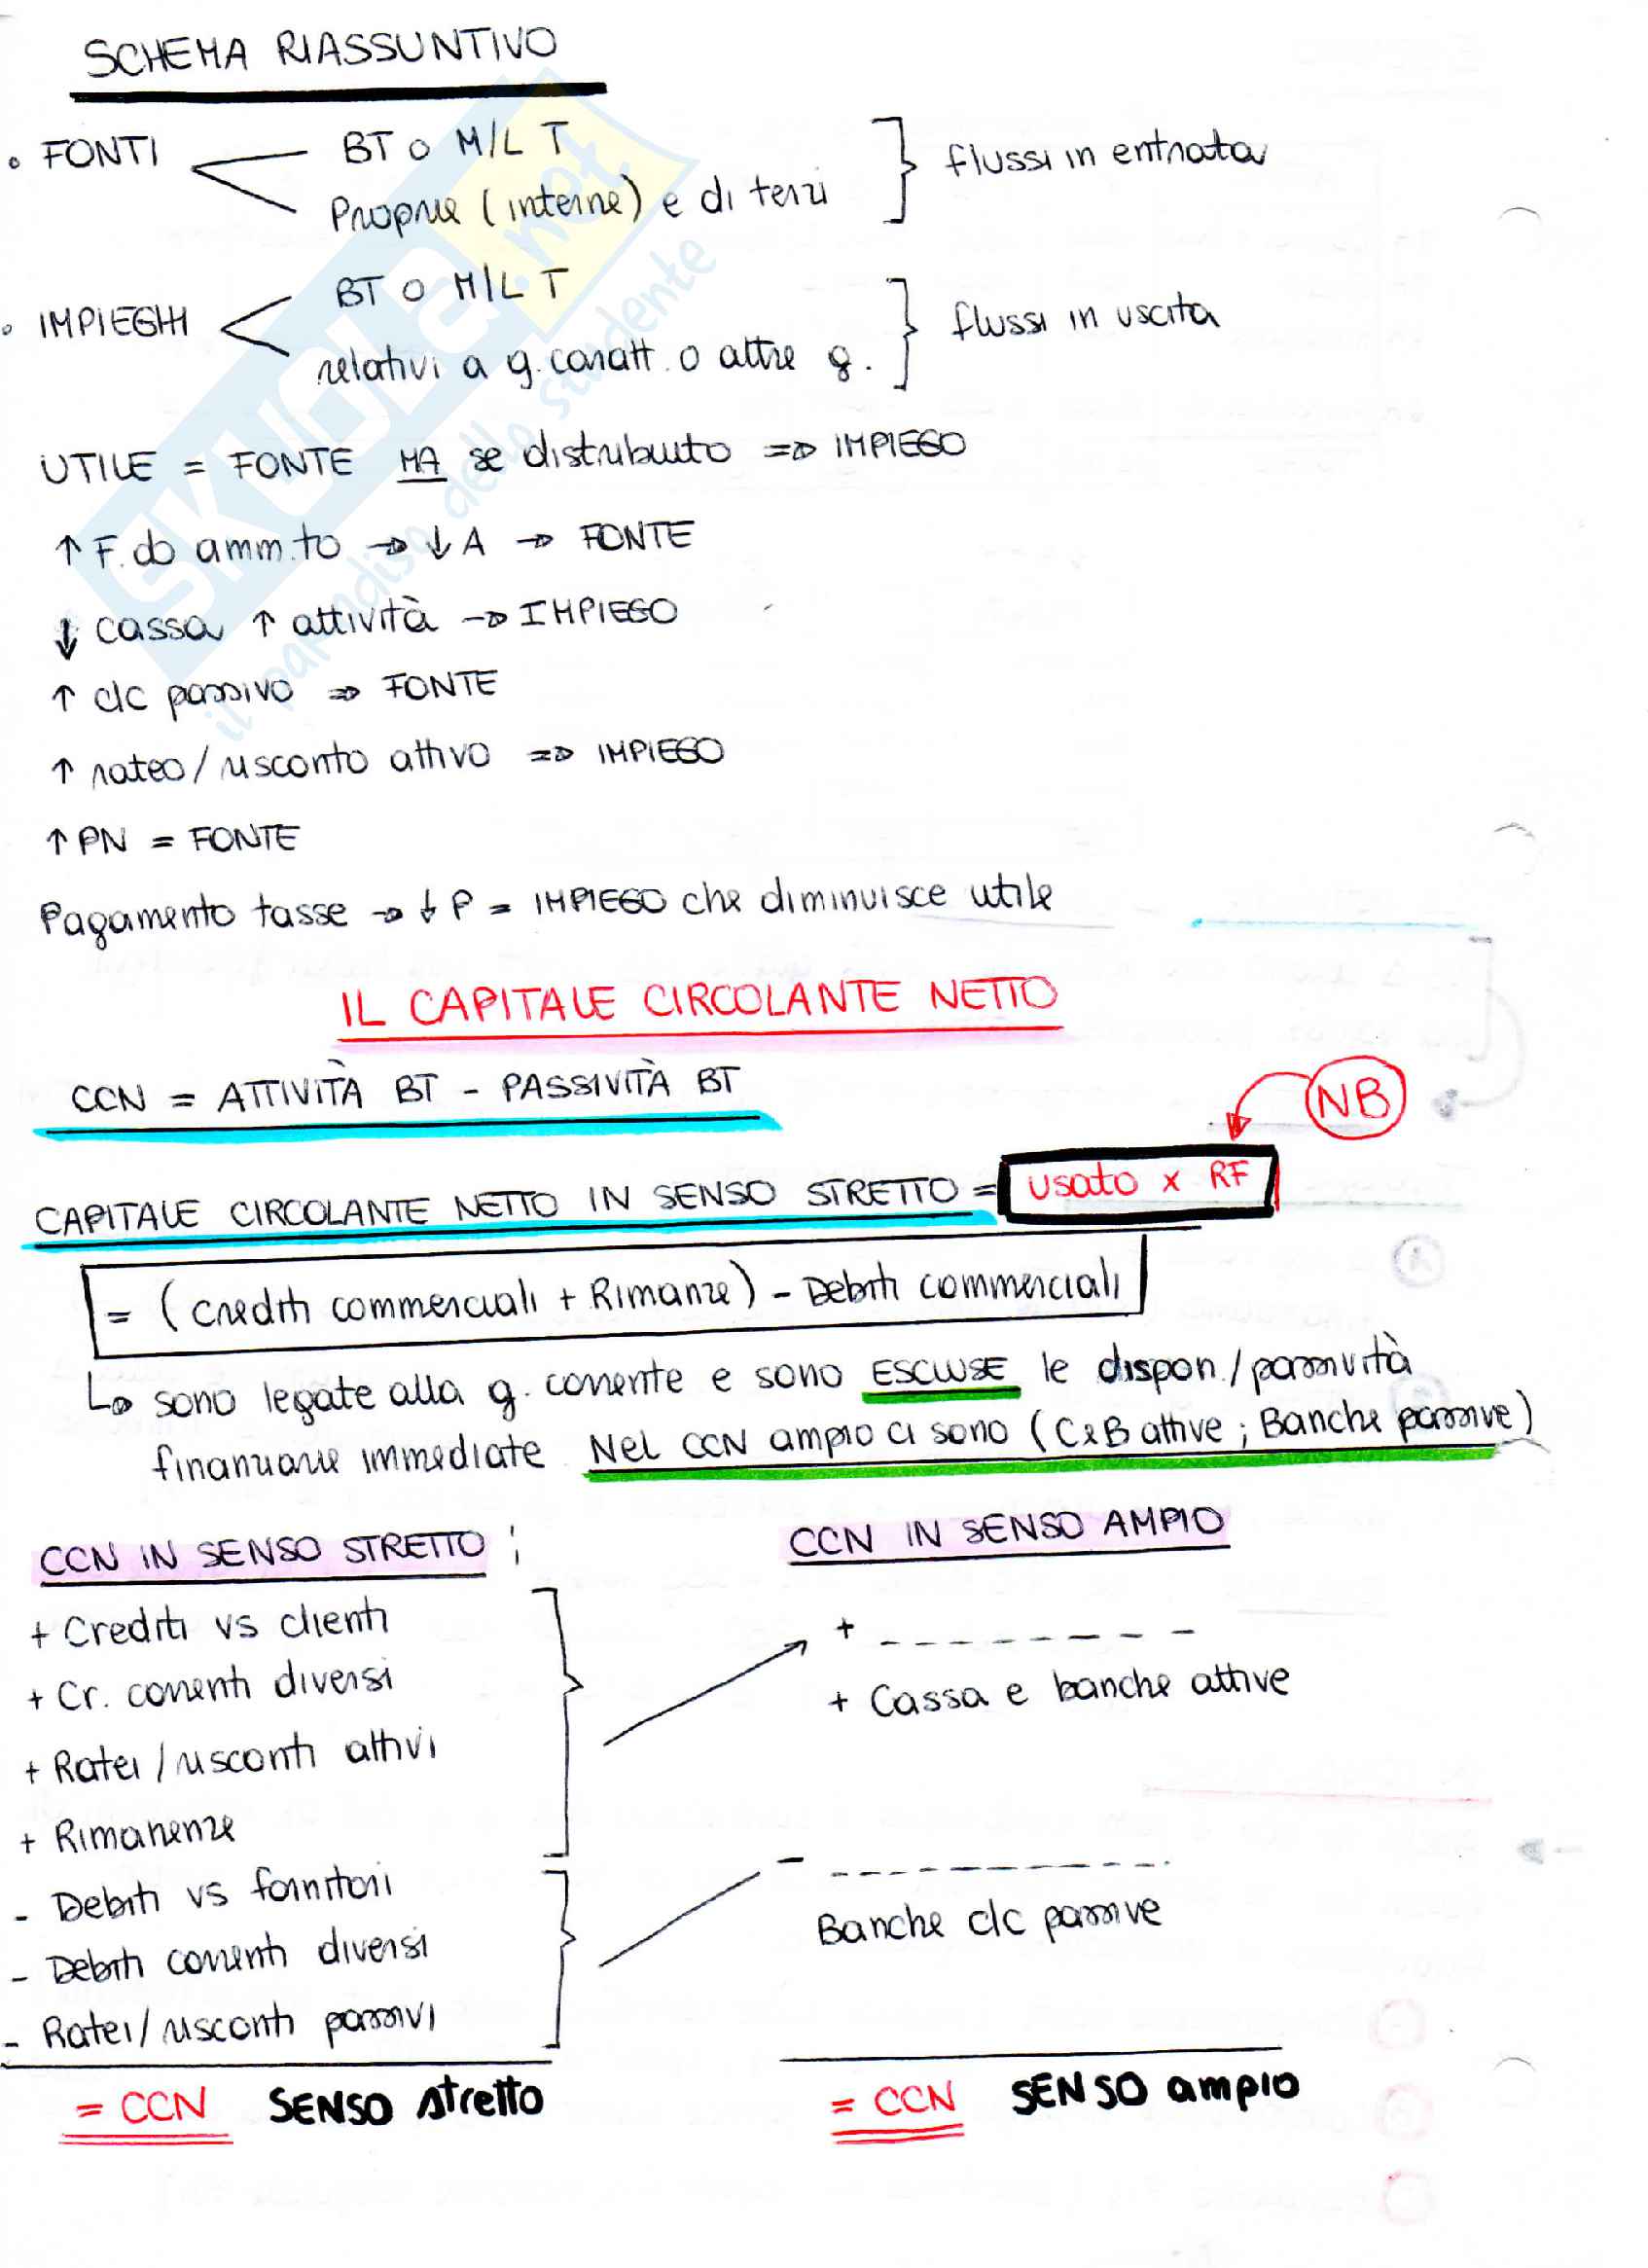 SCHEMA RIASSUNTIVO
• FONTI
BT o M/L T
Proprie (interne) e di terzi
flussi in entrata
• IMPIEGHI
BT O M/L T
relativi a g. caratt. o altre g.
flussi in uscita
UTILE = FONTE MA se distribuito => IMPIEGO
↑ F.do amm.to → ↓ A → FONTE
↓ cassa ↑ attività → IMPIEGO
↑ c/c passivo => FONTE
↑ rateo/risconto attivo => IMPIEGO
↑ PN = FONTE
Pagamento tasse → ↓ P = IMPIEGO che diminuisce utile
IL CAPITALE CIRCOLANTE NETTO
CCN = ATTIVITÀ BT - PASSIVITÀ BT
NB
CAPITALE CIRCOLANTE NETTO IN SENSO STRETTO = usato x RF
= (Crediti commerciali + Rimanze) - Debiti commerciali
↳ sono legate alla g. corrente e sono ESCLUSE le dispon./passività
finanziarie immediate. Nel CCN ampio ci sono (C&B attive ; Banche passive)
CCN IN SENSO STRETTO :
+ Crediti vs clienti
+ Cr. correnti diversi
+ Ratei/risconti attivi
+ Rimanenze
- Debiti vs fornitori
- Debiti correnti diversi
- Ratei/risconti passivi
= CCN SENSO stretto
CCN IN SENSO AMPIO
+ _ _ _ _ _ _ _ _
+ Cassa e banche attive
- _ _ _ _ _ _ _ _
Banche c/c passive
= CCN SENSO ampio
SKUOLA.net
il paradiso dello studente